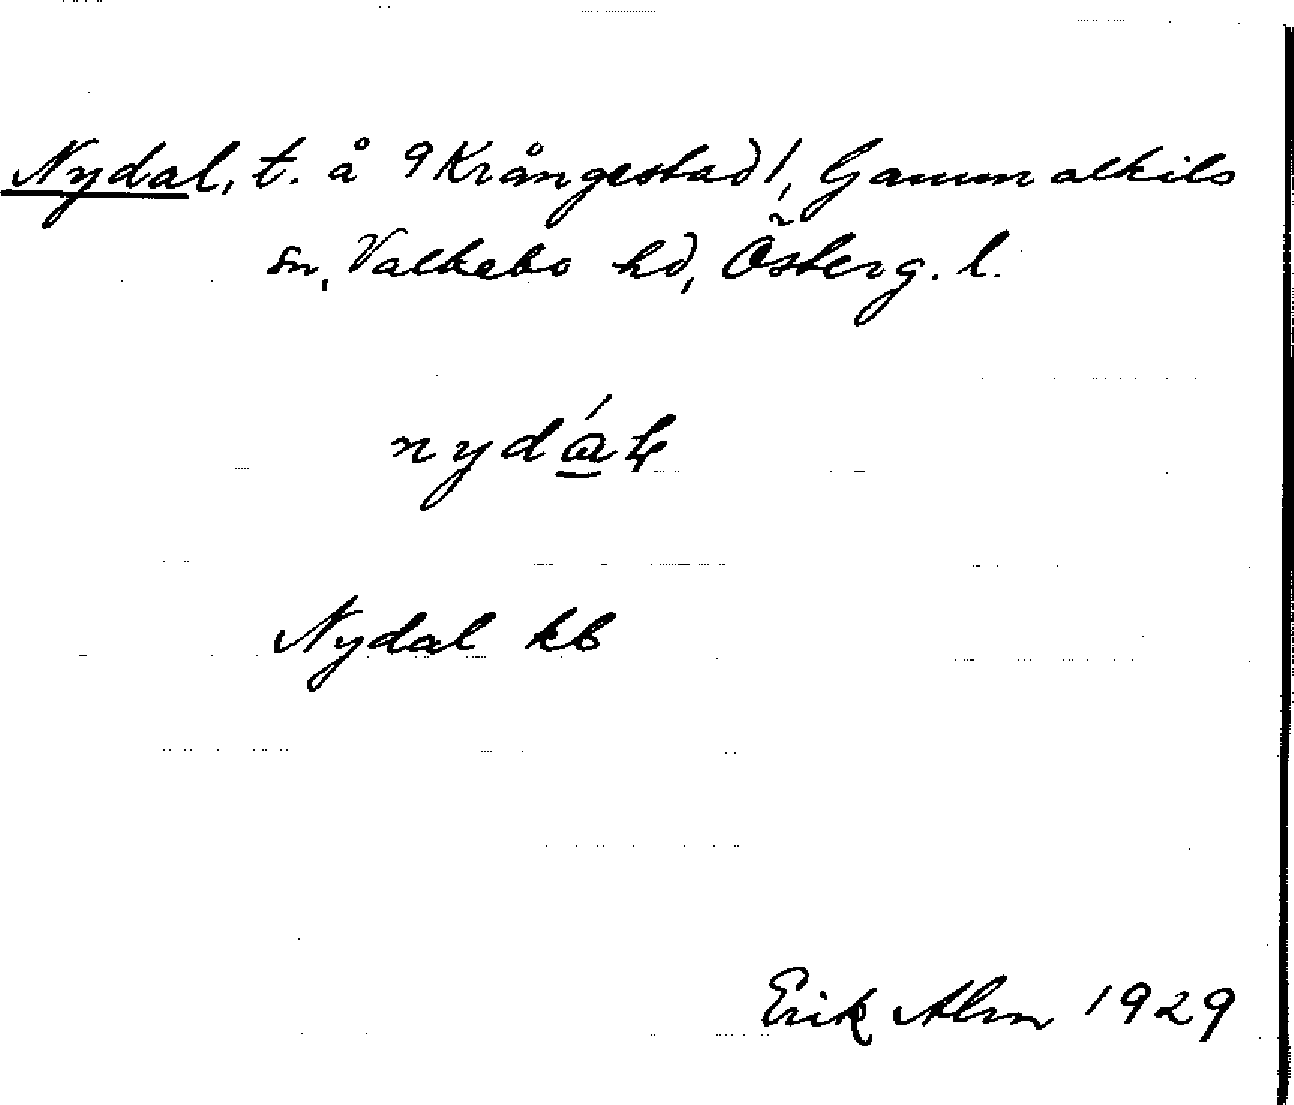 Nydal, t. å 9 Krångestad 1, Gammalkils
sn, Valkebo hd, Österg. l.
nydál
Nydal kb
Erik Alm 1929